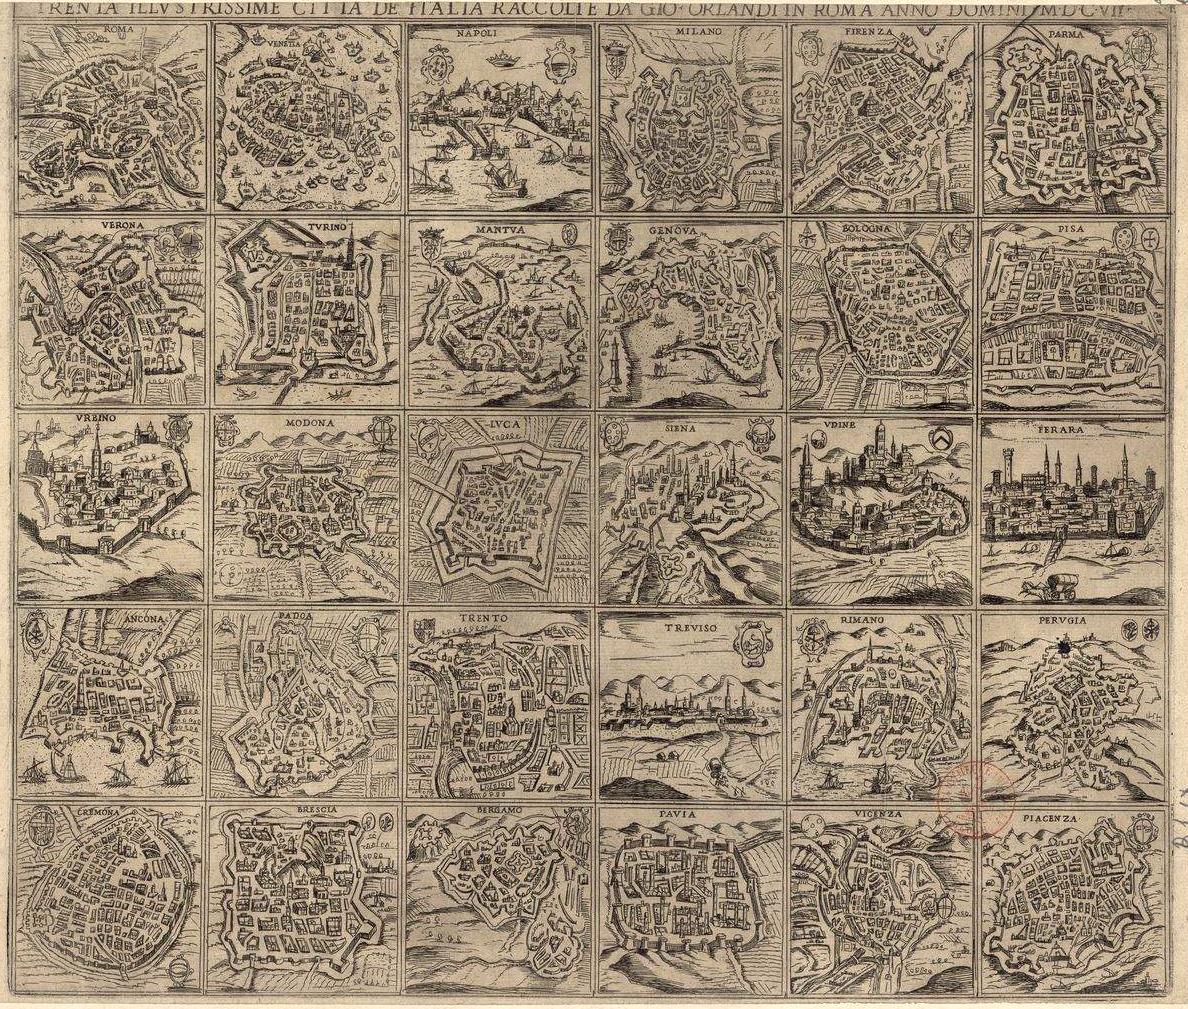 TRENTA ILLVSTRISSIME CITTA DE ITALIA RACCOLTE DA GIO· ORLANDI IN ROMA ANNO DOMINI M·D·C·VII·
ROMA VENETIA NAPOLI MILANO FIRENZA PARMA
VERONA TVRINO MANTVA GENOVA BOLOGNA PISA
VRBINO MODONA LVCA SIENA VDINE FERARA
ANCONA PADOA TRENTO TREVISO RIMANO PERVGIA
CREMONA BRESCIA BERGAMO PAVIA VICENZA PIACENZA